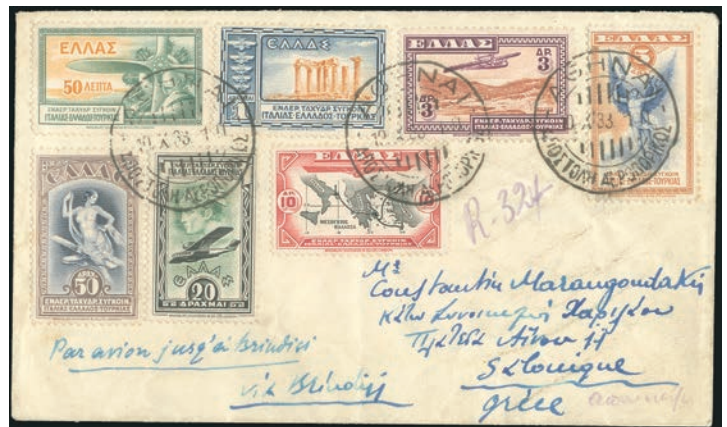 ΕΛΛΑΣ
50 ΛΕΠΤΑ
ΕΝΑΕΡ. ΤΑΧΥΔΡ. ΣΥΓΚΟΙΝ.
ΙΤΑΛΙΑΣ-ΕΛΛΑΔΟΣ-ΤΟΥΡΚΙΑΣ
ΕΛΛΑΣ
1
ΕΝΑΕΡ. ΤΑΧΥΔΡ. ΣΥΓΚΟΙΝ.
ΙΤΑΛΙΑΣ-ΕΛΛΑΔΟΣ-ΤΟΥΡΚΙΑΣ
ΕΛΛΑΣ
ΔΡ. 3
ΔΡ. 3
ΕΝΑΕΡ. ΤΑΧΥΔΡ. ΣΥΓΚΟΙΝ.
ΙΤΑΛΙΑΣ-ΕΛΛΑΔΟΣ-ΤΟΥΡΚΙΑΣ
ΑΘΗΝΑΙ
10 X 33
ΑΠΟΣΤΟΛΗ ΑΕΡΟΠΟΡΙΚΩΣ
ΕΛΛΑΣ
50
ΕΝΑΕΡ. ΤΑΧΥΔΡ. ΣΥΓΚΟΙΝ.
ΙΤΑΛΙΑΣ ΕΛΛΑΔΟΣ ΤΟΥΡΚΙΑΣ
ΕΛΛΑΣ
20
ΔΡΑΧΜΑΙ
ΕΛΛΑΣ
ΔΡ. 10
ΜΕΣΟΓΕΙΟΣ ΘΑΛΑΣΣΑ
ΕΝΑΕΡ. ΤΑΧΥΔΡ. ΣΥΓΚΟΙΝ.
ΙΤΑΛΙΑΣ-ΕΛΛΑΔΟΣ-ΤΟΥΡΚΙΑΣ
R. 324
Mr
Constantin Marangoudakis
Κάτω Συνοικισμός Χαριλάου
Πλατεία Αίνου 11
Salonique
grèce
Par avion jusq'à Brindisi
via Brindisi